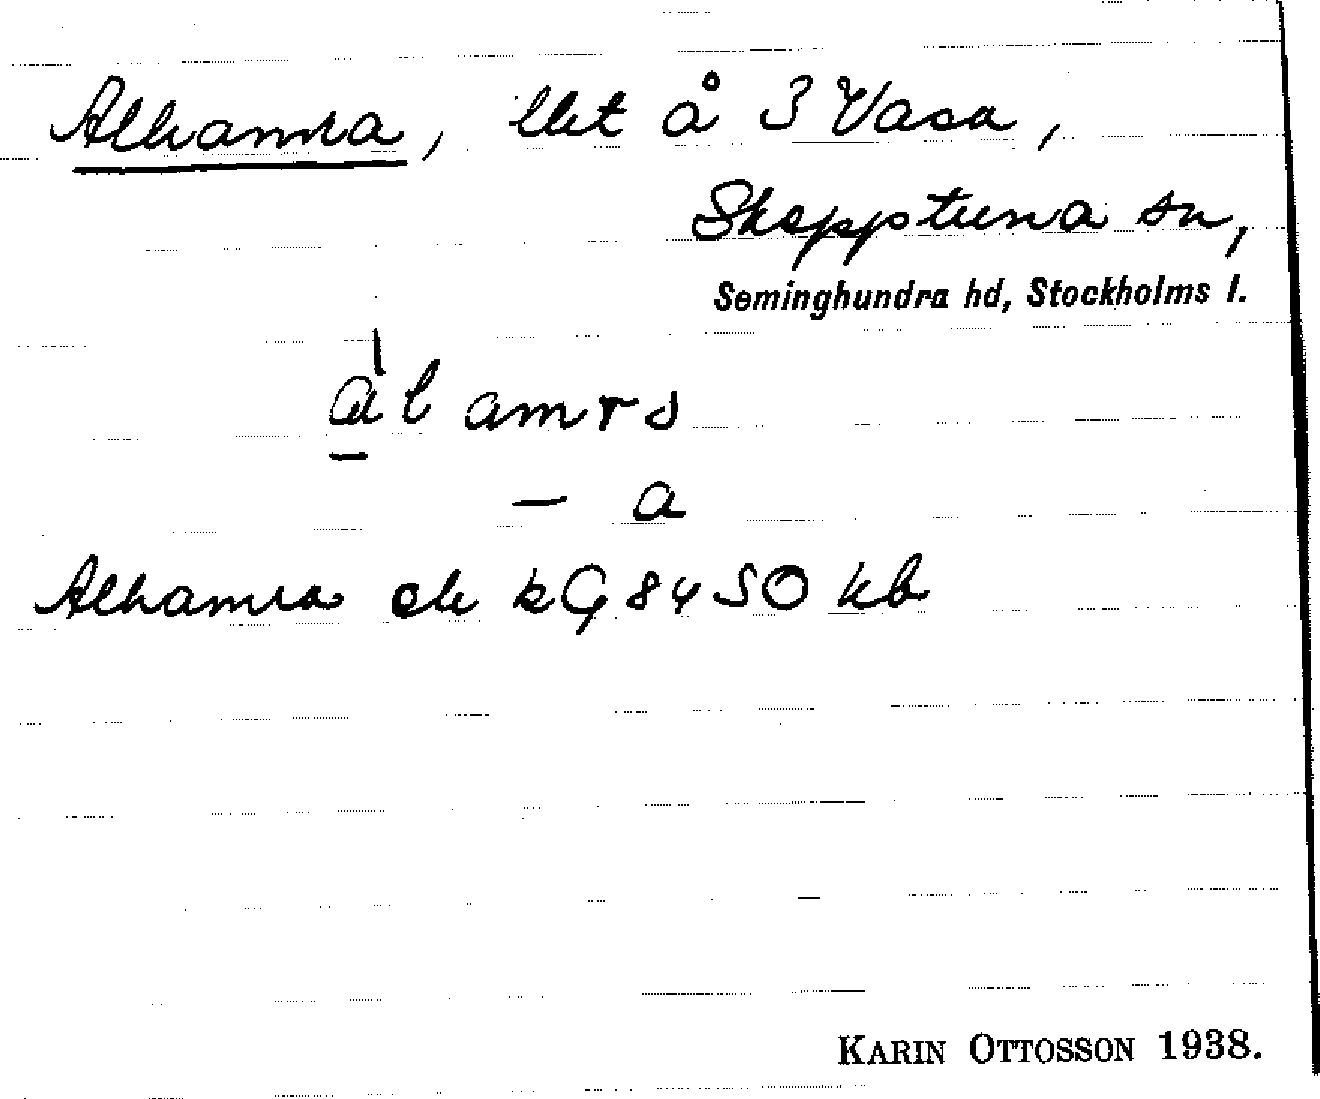 Alhamra, llet å 3 Vasa,
Skepptuna sn,
Seminghundra hd, Stockholms l.
ål amrs
— a
Alhamra ek kG 8450 kb
KARIN OTTOSSON 1938.